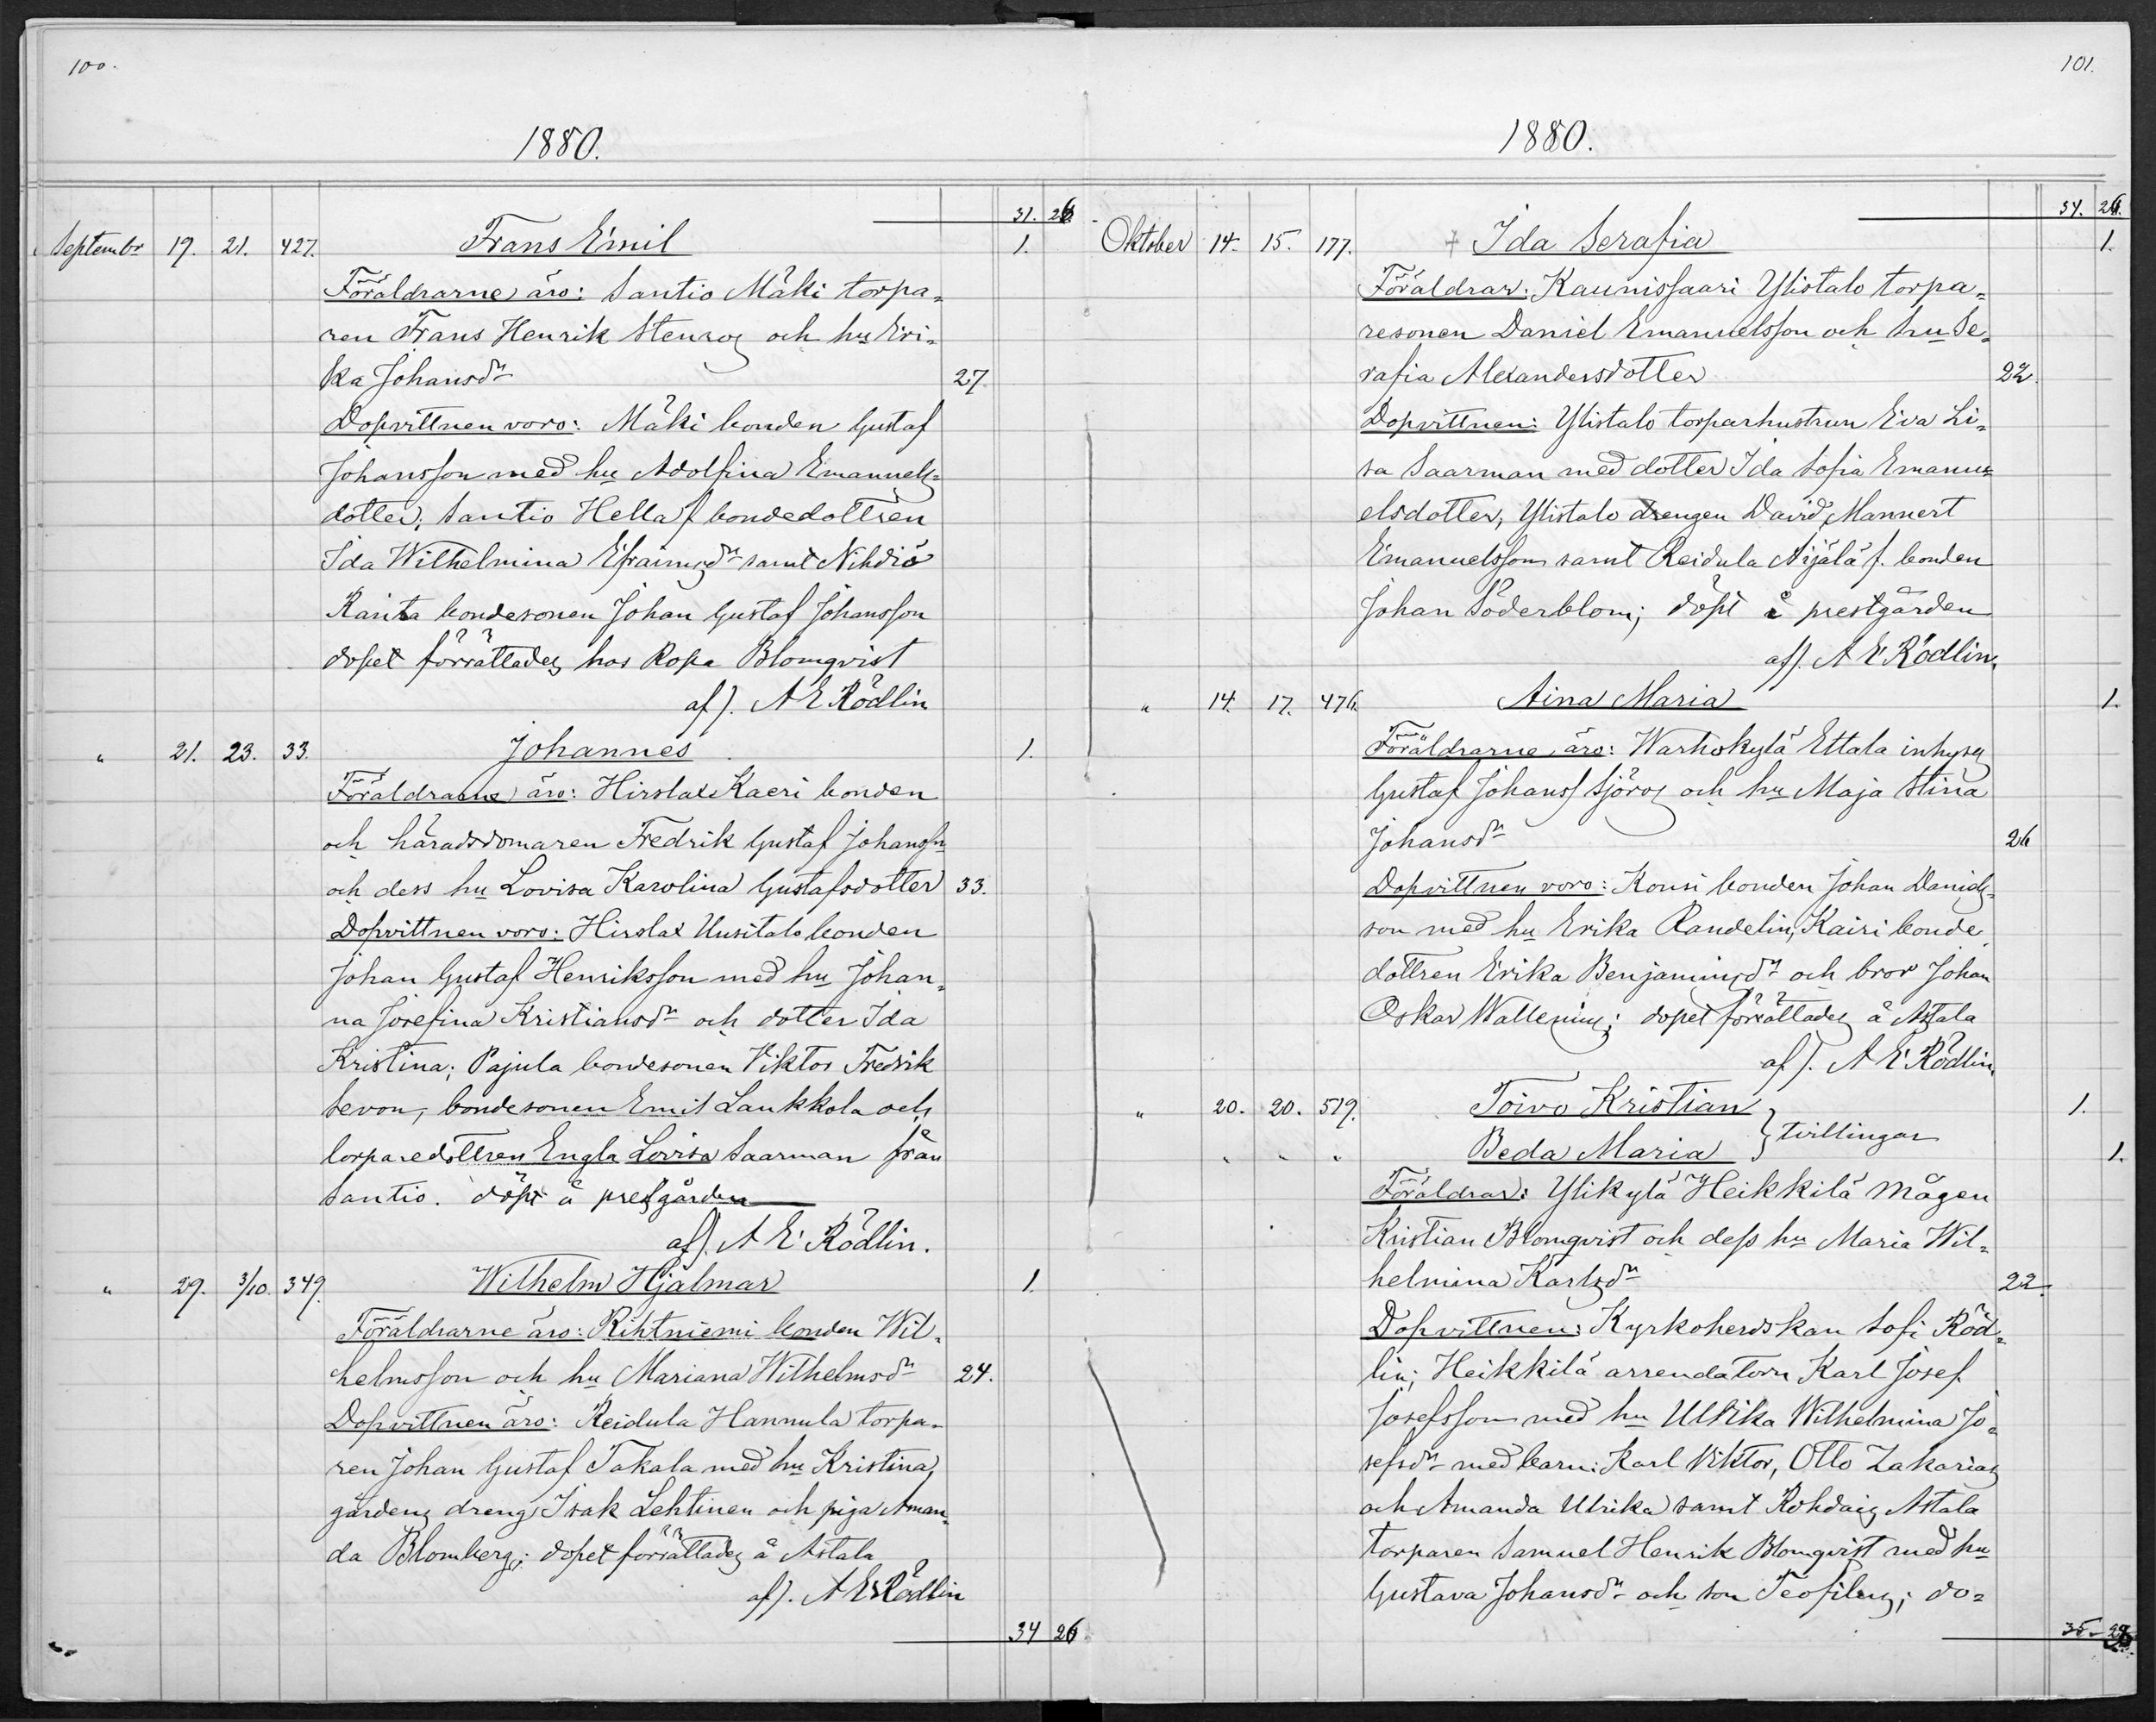 100.
1880.
31. 26.
Septembr 19. 21. 427. Frans Emil 1.
Föräldrarne äro: Santio Mäki torpa-
ren Frans Henrik Stenroos och hu Eri-
ka Johansdr 27.
Dopvittnen voro: Mäki bonden Gustaf
Johansson med hu Adolfina Emanuels-
dotter, Santio Hella f bondedottren
Ida Wilhelmina Efraimsdr samt Nihdiö
Ranta bondesonen Johan Gustaf Johansson
dopet förrättades hos Ropa Blomqvist
af J. A E Rödlin
" 21. 23. 33. Johannes 1.
Föräldrarne äro: Hirslax Kaeri bonden
och häradsdomaren Fredrik Gustaf Johanssn
och dess hu Lovisa Karolina Gustafsdotter 33.
Dopvittnen voro: Hirslax Uusitalo bonden
Johan Gustaf Henriksson med hu Johan-
na Josefina Kristiansdr och dotter Ida
Kristina; Pajula bondesonen Viktor Fredrik
Sevon, bondesonen Emil Laukkola och
torparedottren Engla Lovisa Saarman från
Santio. döpt å prestgården
af J. A E Rödlin.
" 29. 3/10. 349. Wilhelm Hjalmar 1.
Föräldrarne äro: Rihtniemi bonden Wil-
helmsson och hu Mariana Wilhelmsdr 24.
Dopvittnen äro: Reidula Hannula torpa-
ren Johan Gustaf Takala med hu Kristina,
gårdens dreng Isak Lehtinen och piga Aman-
da Blomberg; dopet förrättades å Astala
af J. A E Rödlin
34 26
101.
1880.
34. 26.
Oktober 14. 15. 177. Ida Serafia 1.
Föräldrar: Kaunissaari Ylistalo torpa-
resonen Daniel Emanuelsson och hu Se-
rafia Alexandersdotter 22.
Dopvittnen: Ylistalo torparhustrun Eva Li-
sa Saarman med dotter Ida Sofia Emanu-
elsdotter, Ylistalo drengen David Mannert
Emanuelsson samt Reidula Äijälä f. bonden
Johan Söderblom; döpt å prestgården
af J. A E Rödlin.
" 14. 17. 476. Aina Maria 1.
Föräldrarne äro: Warhokylä Ettala inhyses
Gustaf Johanss Sjöros och hu Maja Stina
Johansdr 26
Dopvittnen voro: Konsi bonden Johan Daniels-
son med hu Erika Randelin, Kairi bonde
dottren Erika Benjaminsdr och bror Johan
Oskar Wallenius; dopet förrättades å Astala
af J. A E Rödlin.
" 20. 20. 519. Toivo Kristian 1.
" " " Beda Maria } tvillingar 1.
Föräldrar: Ylikylä Heikkilä mågen
Kristian Blomqvist och dess hu Maria Wil-
helmina Karlsdr 22.
Dopvittnen: Kyrkoherdskan Sofi Röd-
lin; Heikkilä arrendatorn Karl Josef
Josefsson med hu Ulrika Wilhelmina Jo-
sefsdr med barn: Karl Viktor, Otto Zakarias
och Amanda Ulrika samt Rohdais Astala
torparen Samuel Henrik Blomqvist med hu
Gustava Johansdr och son Teofilus; do-
35. 28.